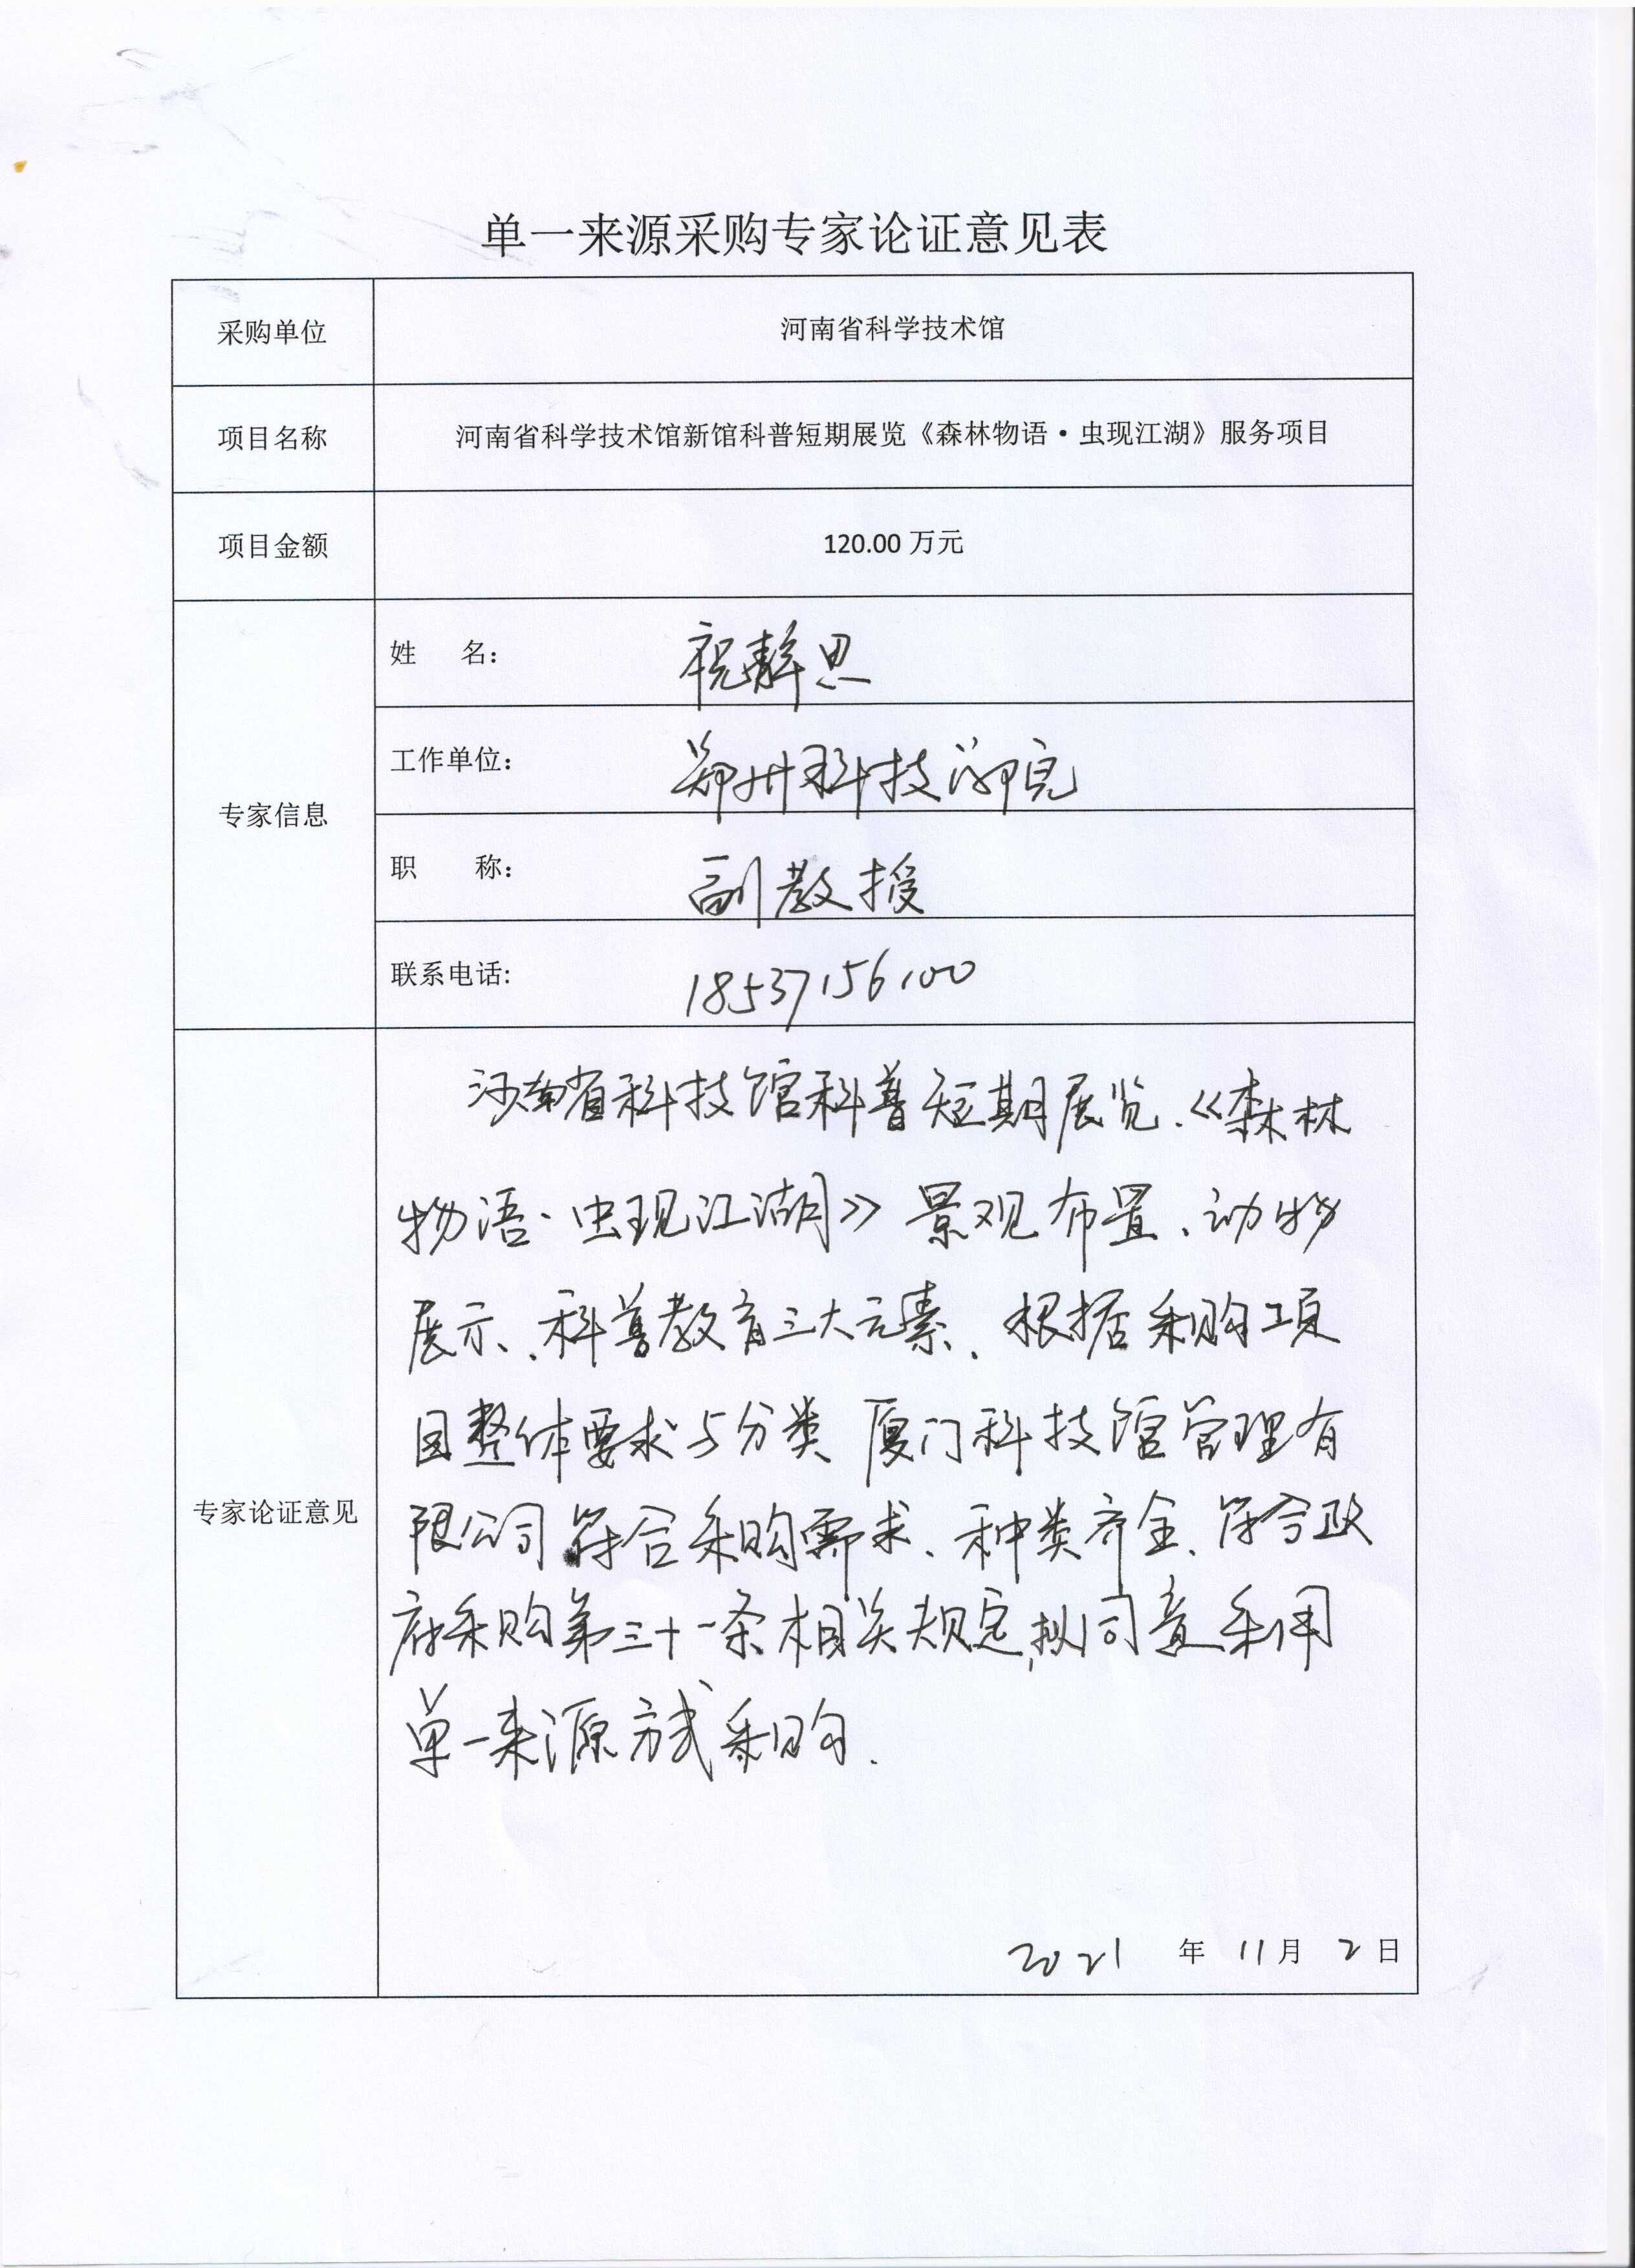 单一来源采购专家论证意见表
采购单位 河南省科学技术馆
项目名称 河南省科学技术馆新馆科普短期展览《森林物语·虫现江湖》服务项目
项目金额 120.00 万元
专家信息
姓 名： 祝静思
工作单位： 郑州科技学院
职 称： 副教授
联系电话: 18537156100
专家论证意见
河南省科技馆科普短期展览、《森林
物语·虫现江湖》景观布置、动物
展示、科普教育三大元素、根据采购项
目整体要求与分类 厦门科技馆管理有
限公司符合采购需求、种类齐全、符合政
府采购第三十一条相关规定,拟同意采用
单一来源方式采购.
2021 年 11 月 2 日